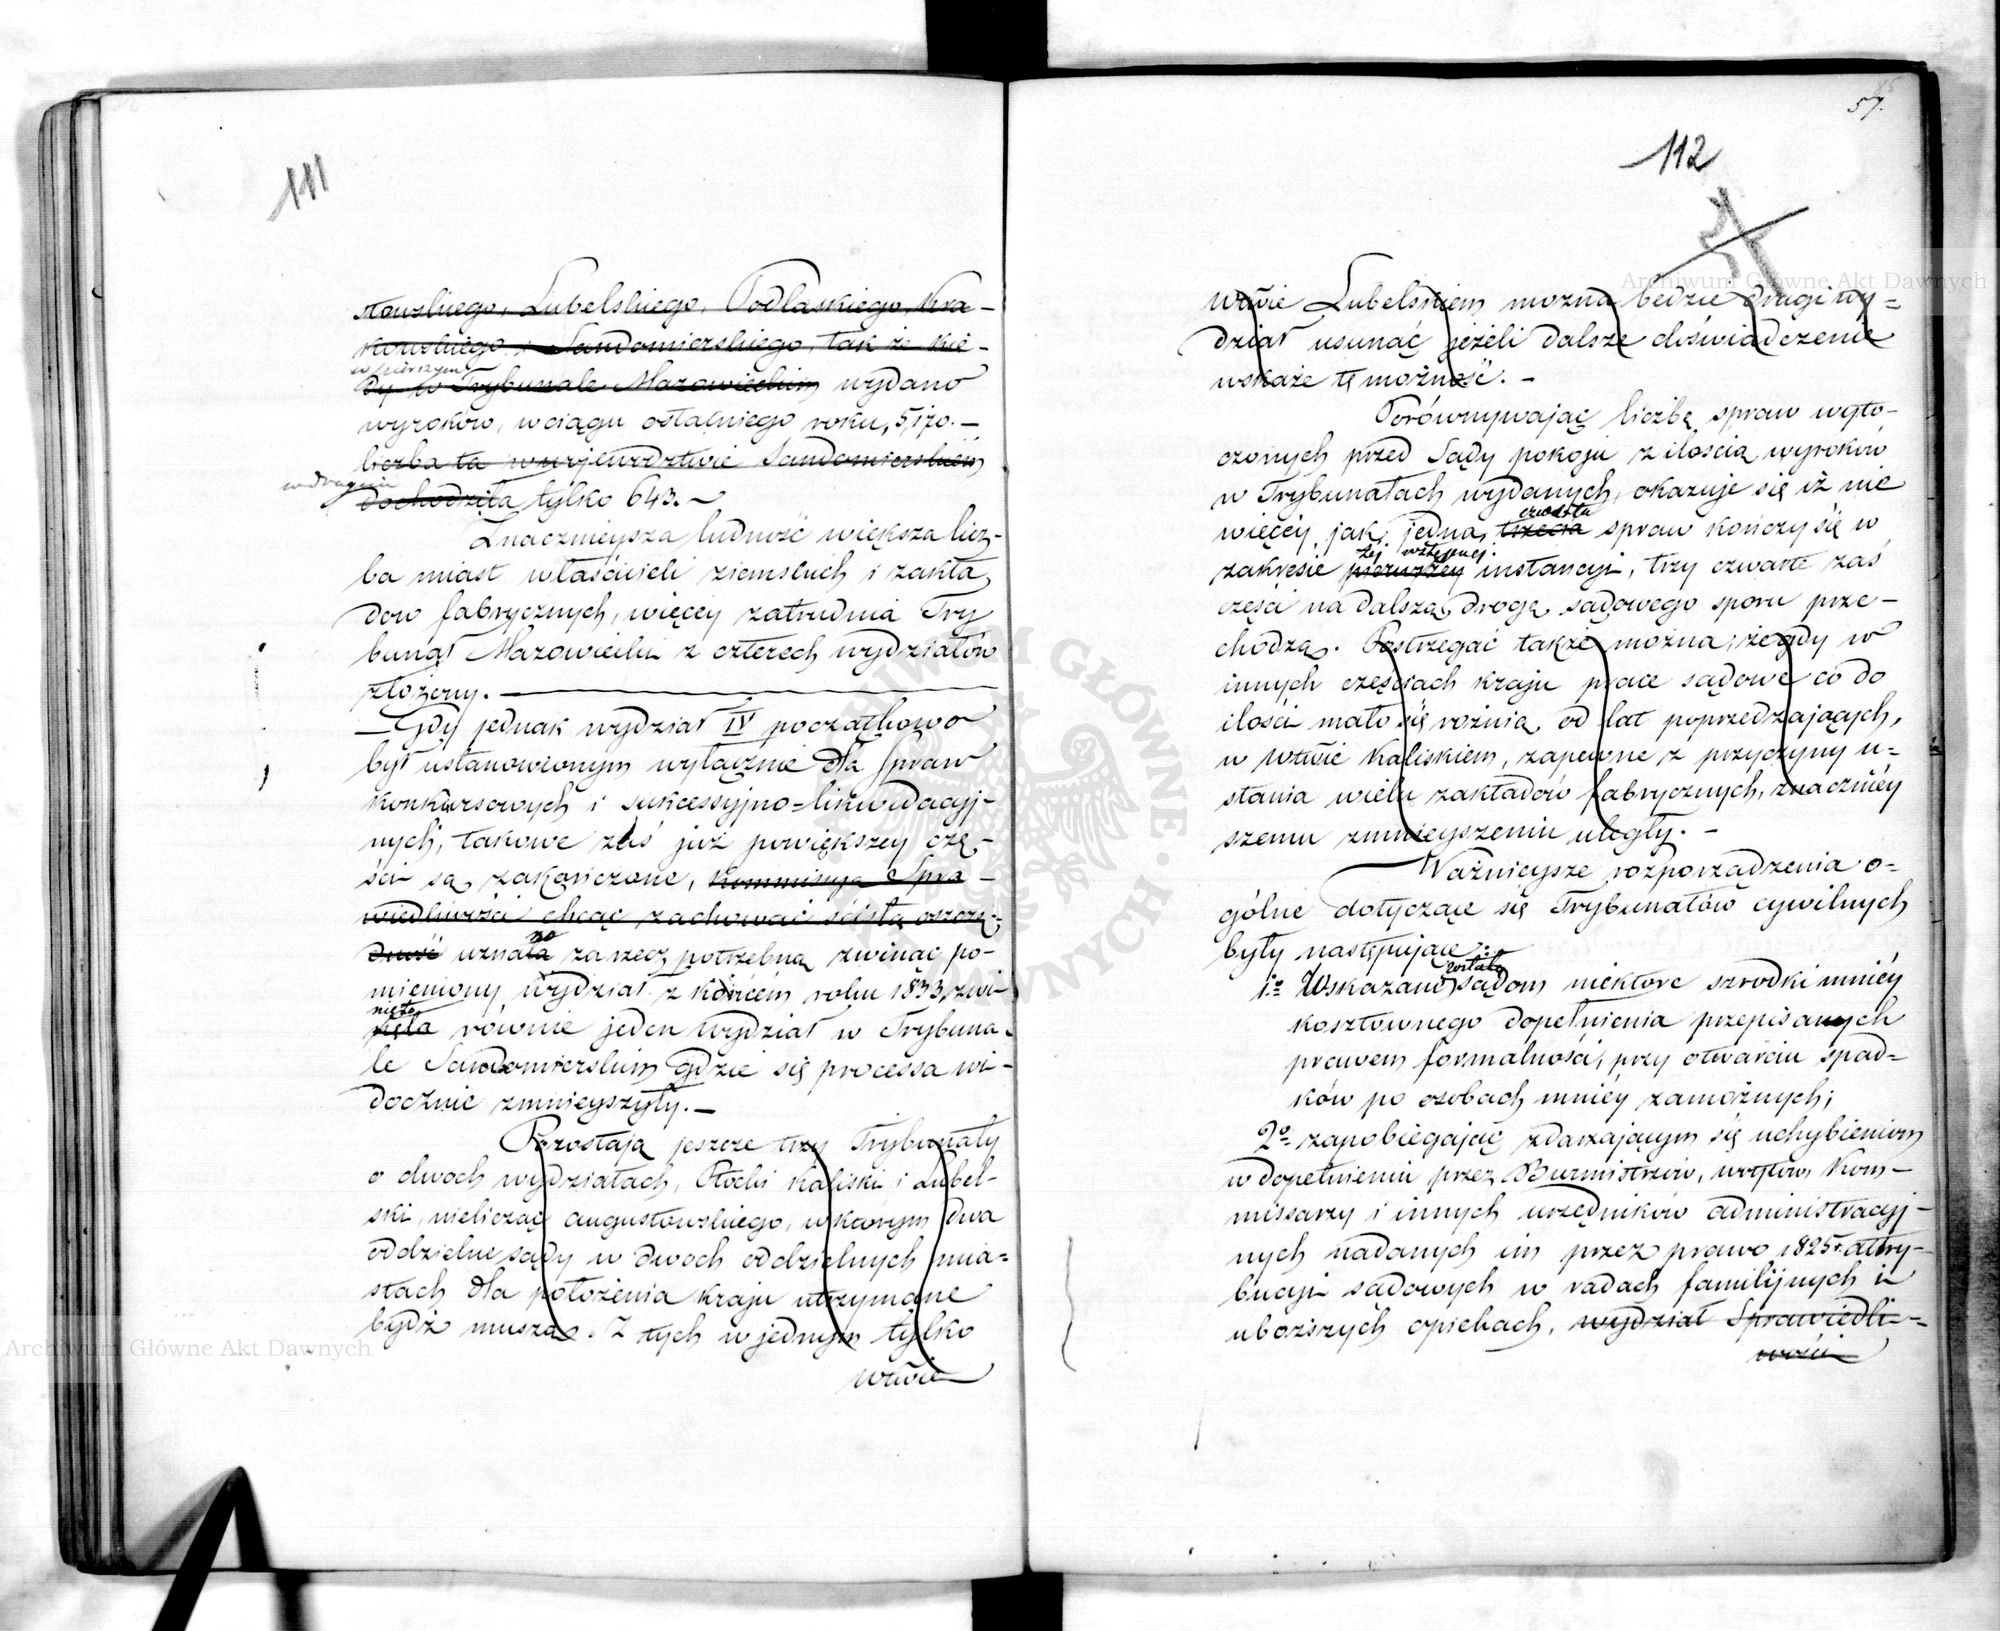 111
stowskiego, Lubelskiego, Podlaskiego, Kra-
kowskiego i Sandomierskiego, tak że kie-
w pierszym
dy w Trybunale Mazowieckim wydano
wyroków, w ciągu ostatniego roku, 5,170. —
liczba ta w wojewodztwie Sandomierskiem
w drugim
dochodziła tylko 643. —
Znacznieysza ludność większa licz-
ba miast właścicieli ziemskich i zakła
dow fabrycznych, więcey zatrudnia Try
bunał Mazowiecki z czterech wydziałów
złożony. —
— Gdy jednak wydział IV początkowo
był ustanowionym wyłącznie dla spraw
konkursowych i sukcessyjno=likwidacyj-
nych, takowe zaś już powiększey czę-
ści są zakończone, Kommissya Spra-
wiedliwości chcąc zachować ścisłą oszczę-
no
dność uznała za rzecz potrzebną zwinąć po-
mieniony wydział z końcem roku 1833, zwi
nięto
nęła równie jeden wydział w Trybuna-
le Sandomierskim gdzie się processa wi-
docznie zmnieyszyły. —
Pozostają jeszcze trzy Trybunały
o dwoch wydziałach, Płocki Kaliski i Lubel-
ski, nielicząc augustowskiego, w ktorym dwa
oddzielne sądy w dwoch oddzielnych mia=
stach dla położenia kraju utrzymane
bydź muszą. Z tych w jednym tylko
wtwie
57.
112
wtwie Lubelskiem mozna będzie drugi wy=
dział usunąć jeżeli dalsze doświadczenie
wskaże tę możność. —
Porównywając liczbę spraw wyto-
czonych przed Sądy pokoju z ilością wyroków
w Trybunałach wydanych, okazuje się iż nie
czwarta
więcey jak jedna trzecia spraw kończy się w
tej wstępnej
zakresie pierwszey instancyi, trzy czwarte zaś
części na dalszą drogę sądowego sporu prze-
chodzą. Postrzegać także można, że gdy w
innych częściach kraju prace sądowe co do
ilości mało się rożnią od lat poprzedzających,
w wtwie Kaliskiem, zapewne z przyczyny u=
stania wielu zakładów fabrycznych, znaczniey
szemu zmnieyszeniu uległy. —
Ważnieysze rozporządzenia o=
gólne dotyczące się Trybunałów cywilnych
były następujące:
zostały
1o Wskazano sądom niektóre szrodki mniéy
kosztownego dopełnienia przepisanych
prawem formalności, przy otwarciu spad=
ków po osobach mniéy zamożnych;
2o zapobiegając zdarzającym się uchybieniom
w dopełnieniu przez Burmistrzów, wojtów, Kom-
missarzy i innych urzędników administracyj-
nych nadanych im przez prawo 1825 r. attry-
bucyi sądowych w radach familijnych i
uboższych opiekach, wydział Sprawiedli-
wości
Archiwum Główne Akt Dawnych
Archiwum Główne Akt Dawnych
ARCHIWUM GŁÓWNE AKT DAWNYCH